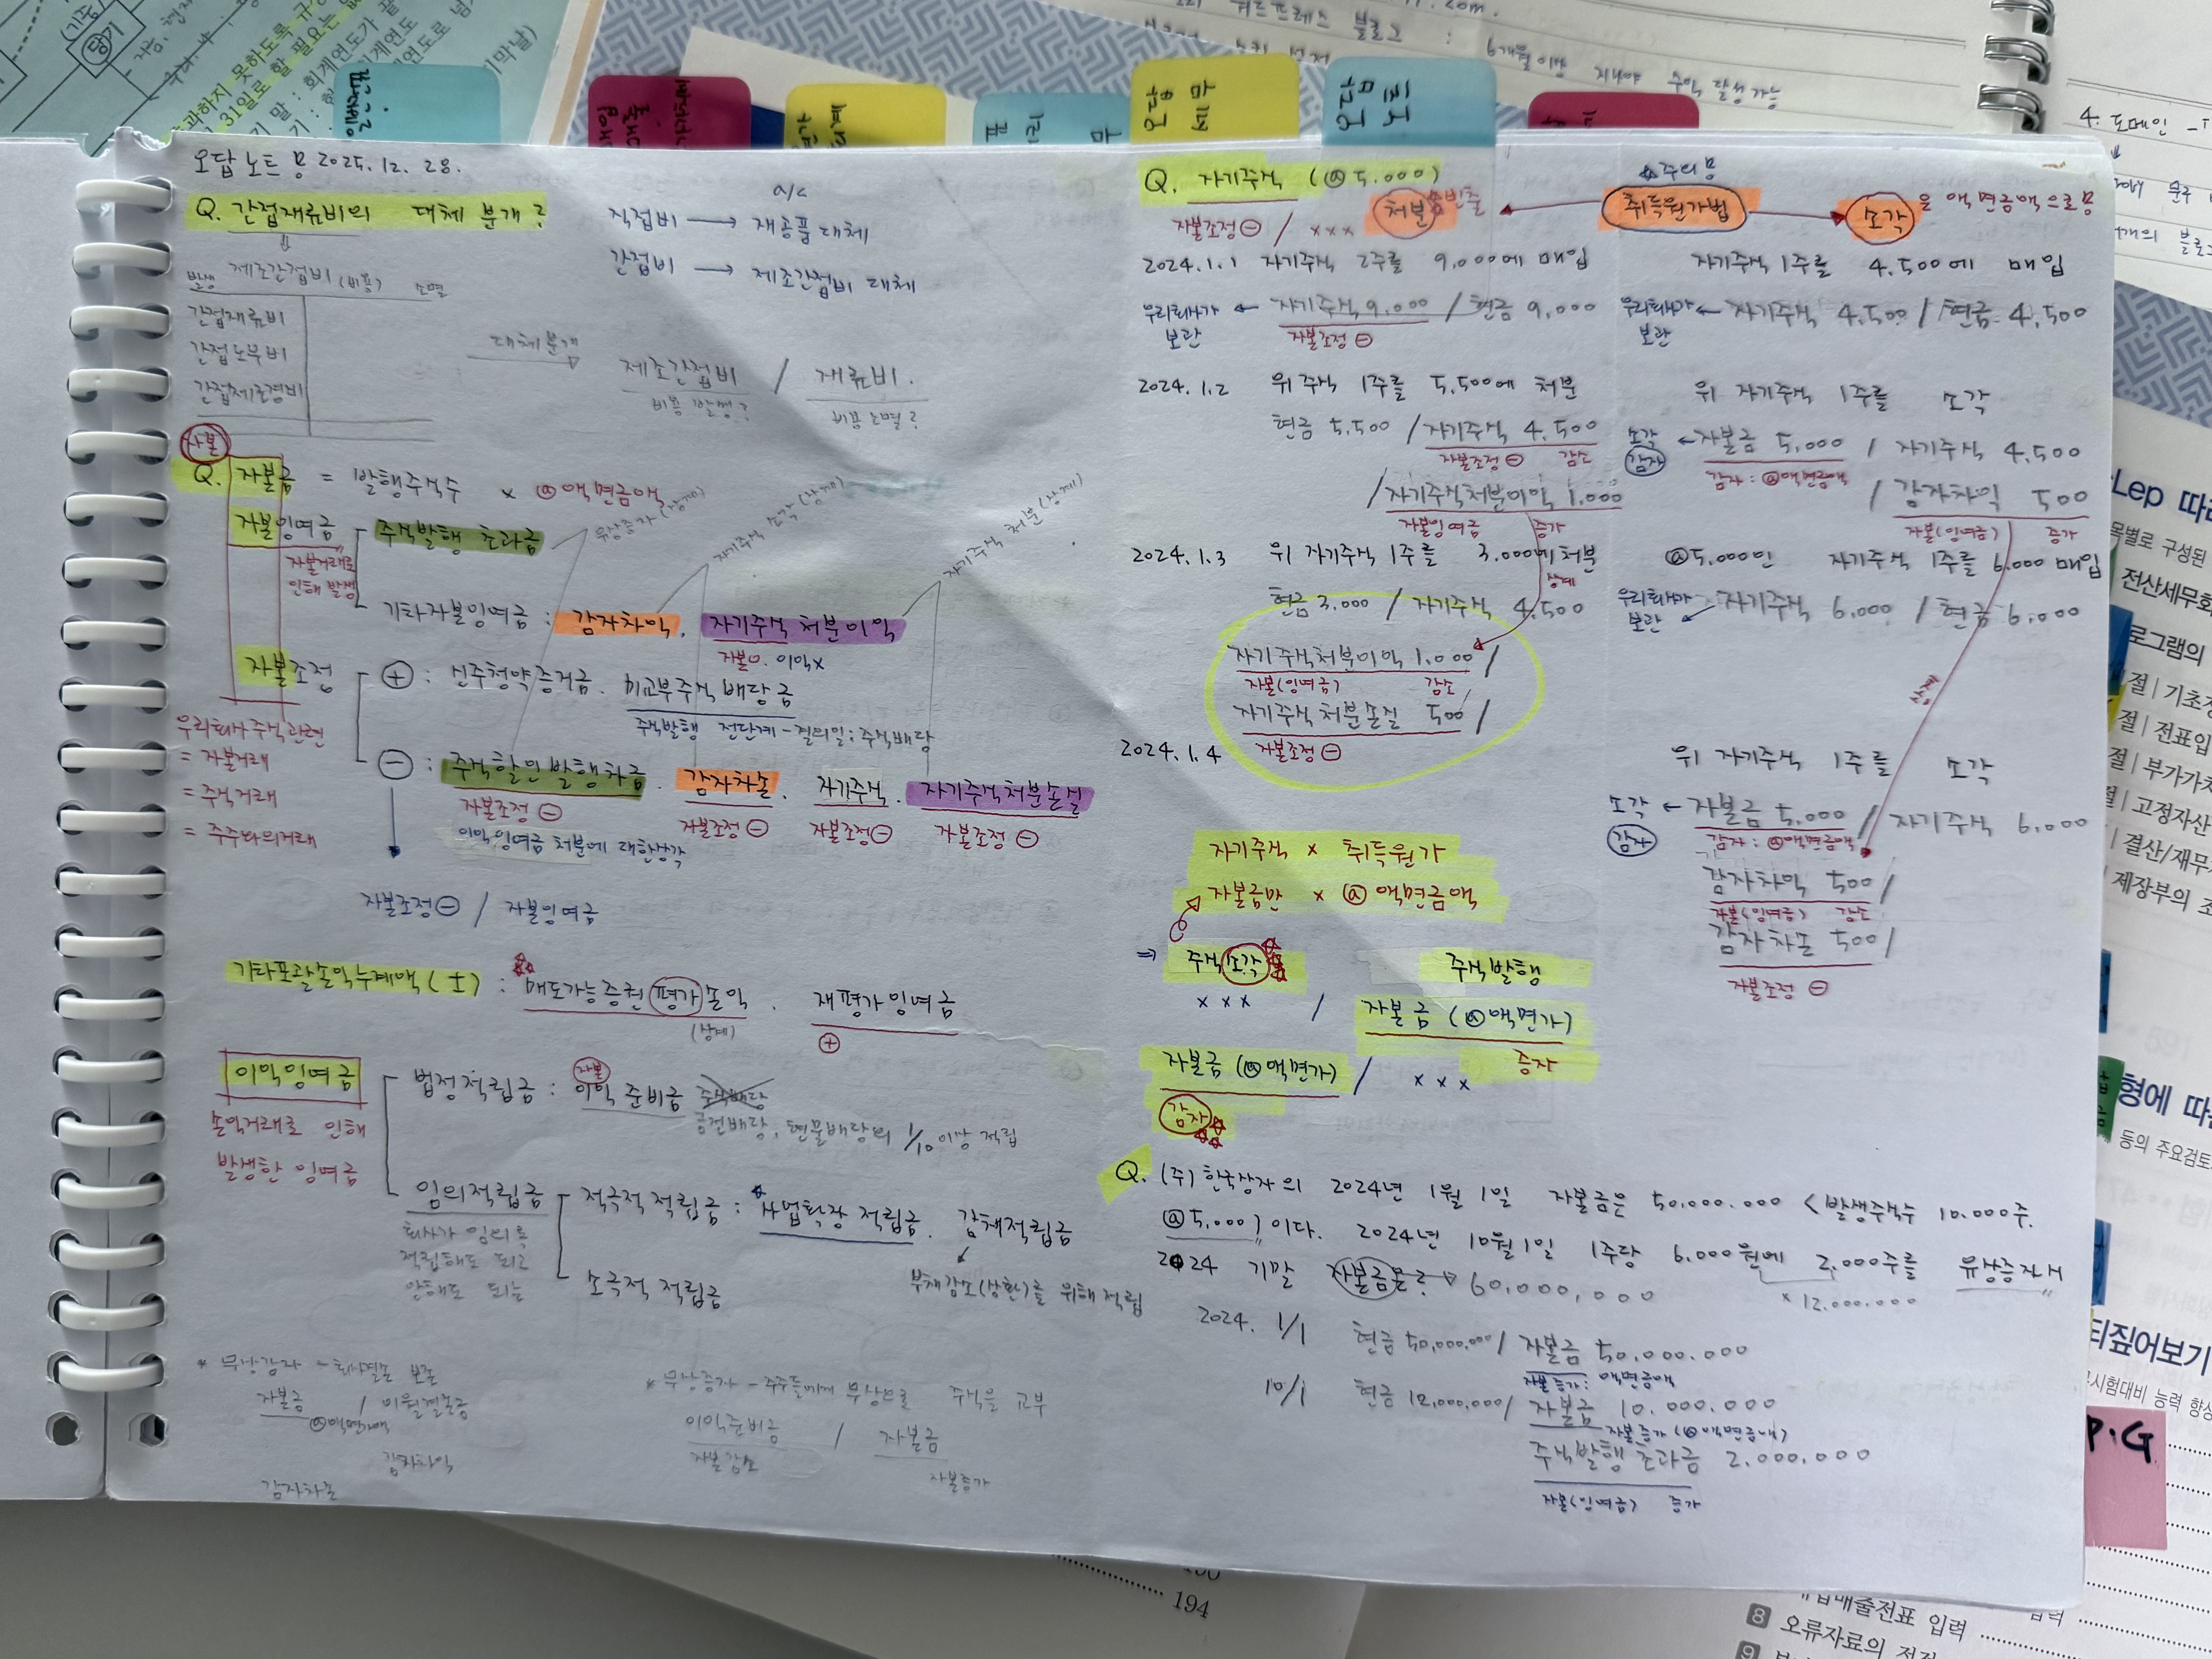 오답노트 용 2025.12.28.
Q. 간접재류비의 대체 분개?
a/c
직접비 → 재공품 대체
간접비 → 제조간접비 대체
발생 제조간접비 (비용) 소멸
간접재류비
간접노무비
간접제조경비
대체분개
제조간접비 / 재류비.
비용 발생? 비용 소멸?
자본
Q. 자본금 = 발행주식수 × @액면금액
자본잉여금 주식발행 초과금
무상증자 (상계)
자기주식 소각 (상계)
자기주식 처분 (상계)
자본거래로
인해 발생
기타자본잉여금 : 감자차익. 자기주식처분이익
자본O. 이익x
자본조정 ⊕ : 신주청약증거금. 미교부주식배당금
주식발행 전단계 - 결의일 : 주식배당
우리회사주식관련
= 자본거래
= 주식거래
= 주주와의거래
⊖ : 주식할인발행차금. 감자차손. 자기주식. 자기주식처분손실
자본조정⊖ 자본조정⊖ 자본조정⊖ 자본조정⊖
이익잉여금 처분에 대한상각
자본조정⊖ / 자본잉여금
기타포괄손익누계액(±) : 매도가능증권 평가손익. 재평가잉여금
(상계) ⊕
이익잉여금
손익거래로 인해
발생한 잉여금
법정적립금 : 이익준비금 주식배당
자본
금전배당, 현물배당의 1/10 이상 적립
임의적립금 적극적 적립금 : 사업확장 적립금. 감채적립금
회사가 임의로
적립해도 되고
안해도 되는
소극적 적립금
부채감소(상환)를 위해 적립
* 무상감자 - 회사결손 보존
자본금 / 이월결손금
@액면가액
감자차익
감자차손
* 무상증자 - 주주들에게 무상으로 주식을 교부
이익준비금 / 자본금
자본감소 자본증가
Q. 자기주식 (@5.000)
자본조정⊖ / xxx 처분
☆주의 용
취득원가법
소각 을 액면금액으로 용
2024.1.1 자기주식 2주를 9,000에 매입
우리회사가 보관 ← 자기주식 9,000 / 현금 9,000
자본조정⊖
2024.1.2 위 주식 1주를 5,500에 처분
현금 5,500 / 자기주식 4,500
자본조정⊖ 감소
/ 자기주식처분이익 1.000
자본잉여금 증가
2024.1.3 위 자기주식 1주를 3.000에 처분
상계
현금 3.000 / 자기주식 4.500
자기주식처분이익 1.000 /
자본(잉여금) 감소
자기주식처분손실 500 /
2024.1.4 자본조정⊖
자기주식 1주를 4,500에 매입
우리회사가 보관 ← 자기주식 4,500 / 현금 4,500
위 자기주식 1주를 소각
소각 ← 자본금 5,000 / 자기주식 4,500
감자 감자 : @액면금액
/ 감자차익 500
자본(잉여금) 증가
@5.000인 자기주식 1주를 6.000 매입
우리회사가 보관 자기주식 6,000 / 현금 6,000
위 자기주식 1주를 소각
소각 ← 자본금 5,000 / 자기주식 6,000
감자 감자 : @액면금액
감자차익 500 /
자본(잉여금) 감소
감자차손 500 /
자본조정⊖
자기주식 × 취득원가
자본금만 × @액면금액
⇒ 주식소각 주식발행
xxx / 자본금 (@액면가)
증자
자본금 (@액면가) / xxx
감자
Q. (주)한국상자의 2024년 1월 1일 자본금은 50,000.000 <발생주식수 10.000주.
@5,000>이다. 2024년 10월 1일 1주당 6.000원에 2,000주를 유상증자시
2024 기말 자본금은? → 60,000,000
× 12.000.000
2024. 1/1 현금 50,000.000 / 자본금 50.000.000
자본증가 : 액면금액
10/1 현금 12,000.000 / 자본금 10.000.000
자본증가 (@액면금액)
주식발행초과금 2.000.000
자본(잉여금) 증가
워드프레스 블로그 : 6개월이상 지나야 수익 달성가능
4. 도메인
과하지 못하도록
31일로 할 필요는
당기
194
8 오류자료의 정정
매입매출전표 입력
P.G
형에 따
티짚어보기
시험대비 능력 향상
등의 주요검토
목별로 구성된
전산세무회
로그램의
절 | 기초정
절 | 전표입
절 | 부가가치
절 | 고정자산
| 결산/재무
제장부의 조